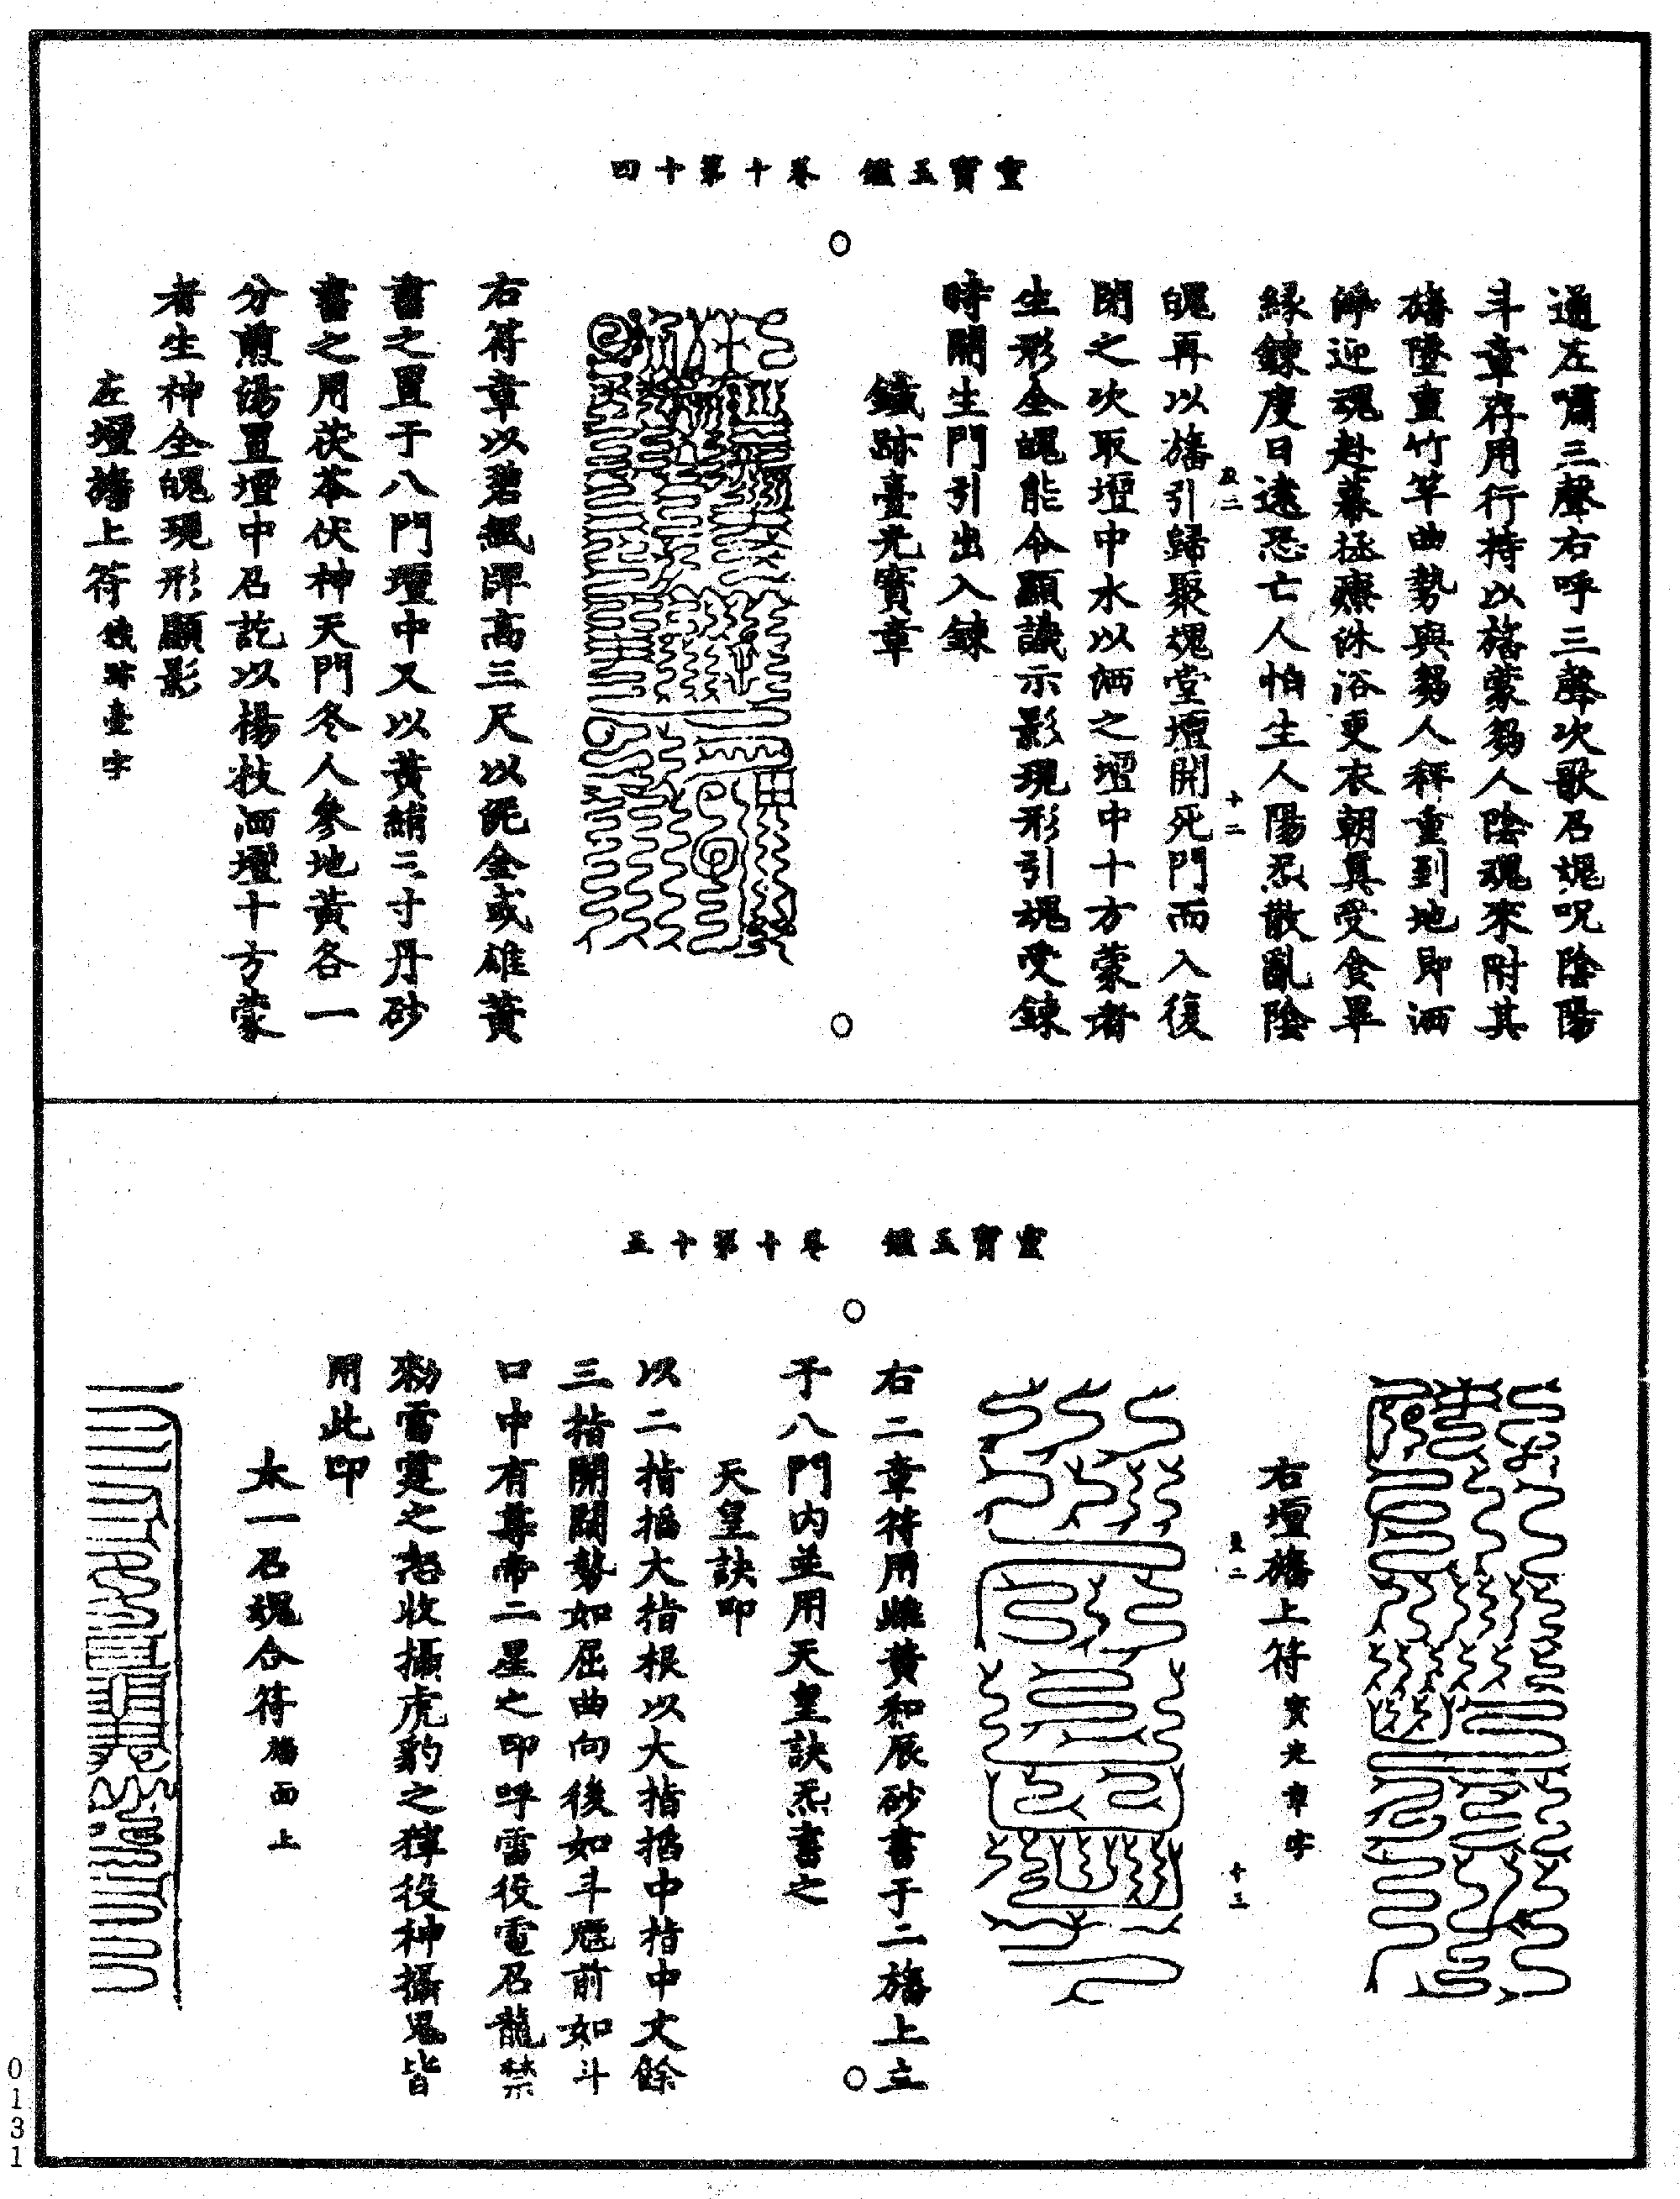 靈寶玉鑑 卷十第十四
通左嘯三聲右呼三聲次歌召魂呪陰陽
斗章存用行持以旛蒙芻人陰魂來附其
旛墜重竹竿曲勢與芻人秤重到地即洒
淨迎魂赴幕拯療沐浴更衣朝眞受食畢
緣鍊度日遠恐亡人怕生人陽炁散亂陰
魄再以旛引歸聚魂堂壇開死門而入復
閉之次取壇中水以洒之壇中十方蒙者
生形全魄能令顯識示影現形引魂受鍊
時開生門引出入鍊
鐵跡臺光寶章
右符章以碧
高三尺以泥金或雄黃
書之置于八門壇中又以黃絹三寸丹砂
書之用茯苓伏神天門冬人參地黃各一
分煎湯置壇中召訖以楊枝洒壇十方蒙
者生神全魄現形顯影
左壇旛上符 鐵跡臺字
十二
靈寶玉鑑 卷十第十五
右壇旛上符 寶光章字
十三
右二章符用雌黃和辰砂書于二旛上立
于八門內並用天皇訣炁書之
天皇訣印
以二指掐大指根以大指掐中指中文餘
三指開闢勢如屈曲向後如斗魁前如斗
口中有尊帝二星之印呼雷役電召龍禁
勑雷霆之
收攝虎豹之
役神攝鬼皆
用此印
太一召魂合符 旛面上
0131